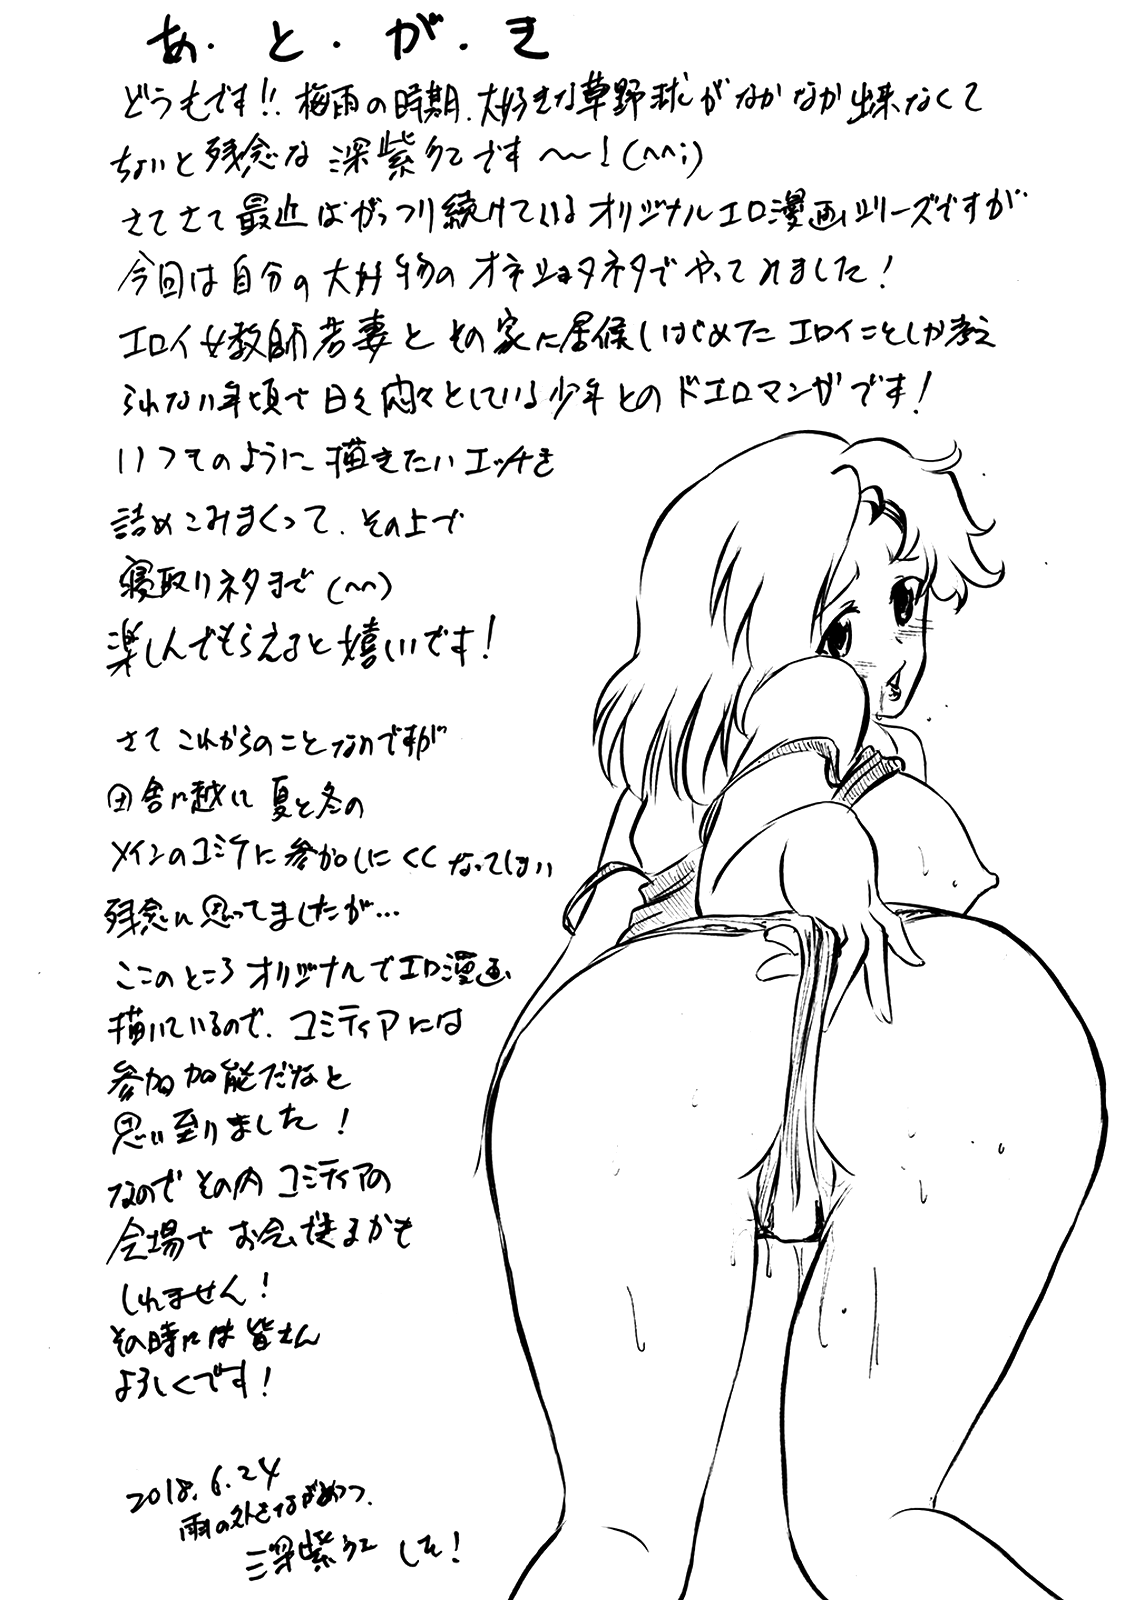 あ・と・が・き
どうもです!!梅雨の時期、大好きな草野球がなかなか出来なくて
ちょいと残念な深紫クエです〜〜!(^^;)
さてさて最近はがっつり続けているオリジナルエロ漫画シリーズですが
今回は自分の大好物のオネショタネタでやってみました!
エロイ女教師若妻とその家に居候しはじめたエロイことしか考え
られない年頃で日々悶々としている少年とのドエロマンガです!
いつものように描きたいエッチを
詰めこみまくって、その上で
寝取りネタまで(^^)
楽しんでもらえると嬉しいです!
さてこれからのことなのですが
田舎に越して夏と冬の
メインのコミケに参加しにくくなってしまい
残念に思ってましたが…
ここのところオリジナルでエロ漫画
描いているので、コミティアには
参加可能だなと
思い至りました!
なのでその内コミティアの
会場でお会いできるかも
しれません!
その時には皆さん
よろしくです!
2018.6.24
雨の外をながめつつ、
深紫クエ